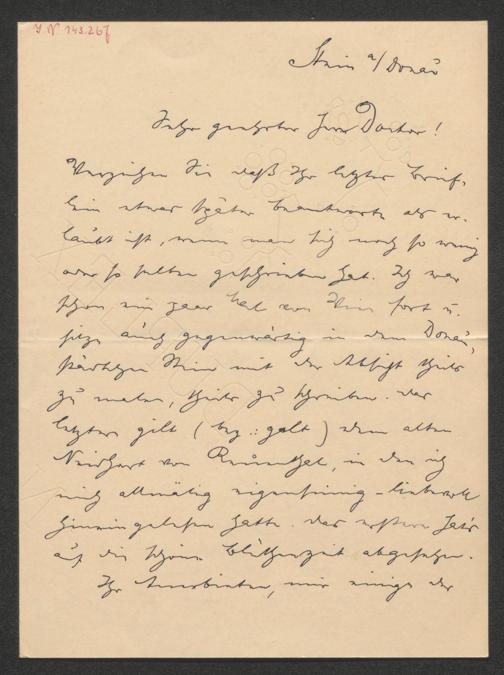 J. N 143.267
Stein a/Donau
Sehr geehrter Herr Doctor!
Verzeihen Sie daß Ihr letzter Brief,
ein etwas später beantworte als er-
laubt ist, wenn man sich noch so wenig
oder so selten geschrieben hat. Ich war
schon ein paar Mal von Wien fort u.
sitze auch gegenwärtig in dem Donau-
städtchen Stein mit der Absicht theils
zu malen, theils zu schreiben. Das
letztere gilt (bez.: galt) dem alten
Neidhart von Reuenthal, in den ich
mich allmälig eigensinnig-liebevoll
hineingelesen hatte. Das erstere
auf die schöne Blüthenzeit abgesehen.
Ihr Anerbieten, mir einige der